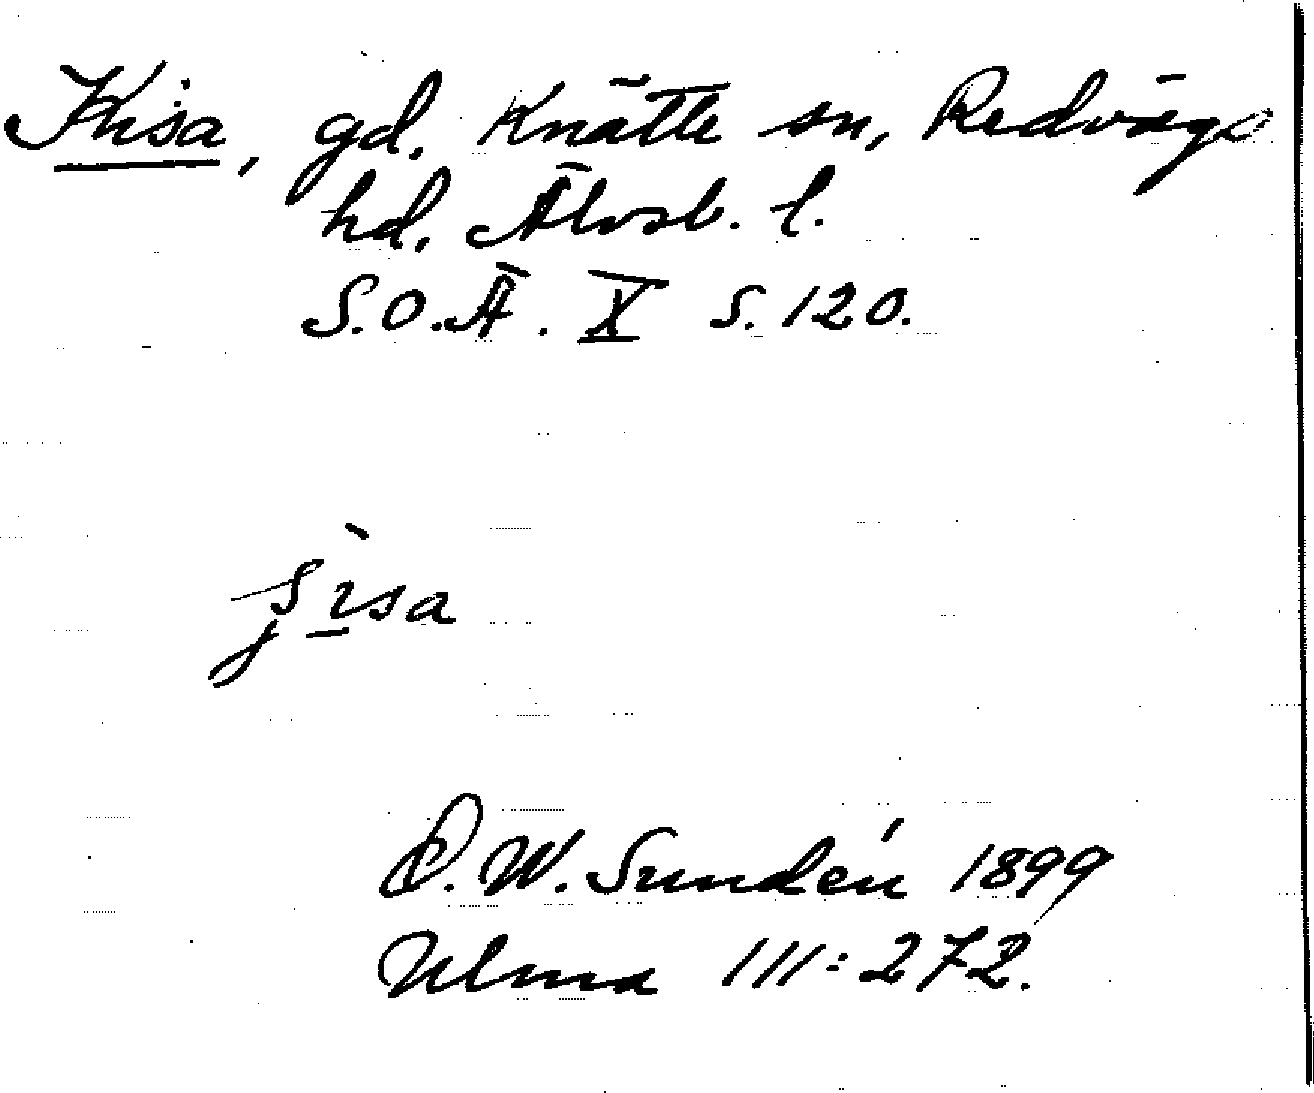 Kisa, gd. Knätte sn, Redvägs
hd. Älvsb. l.
S.O.Ä. X s. 120.
D. W. Sundén 1899
Ulma 111:272.